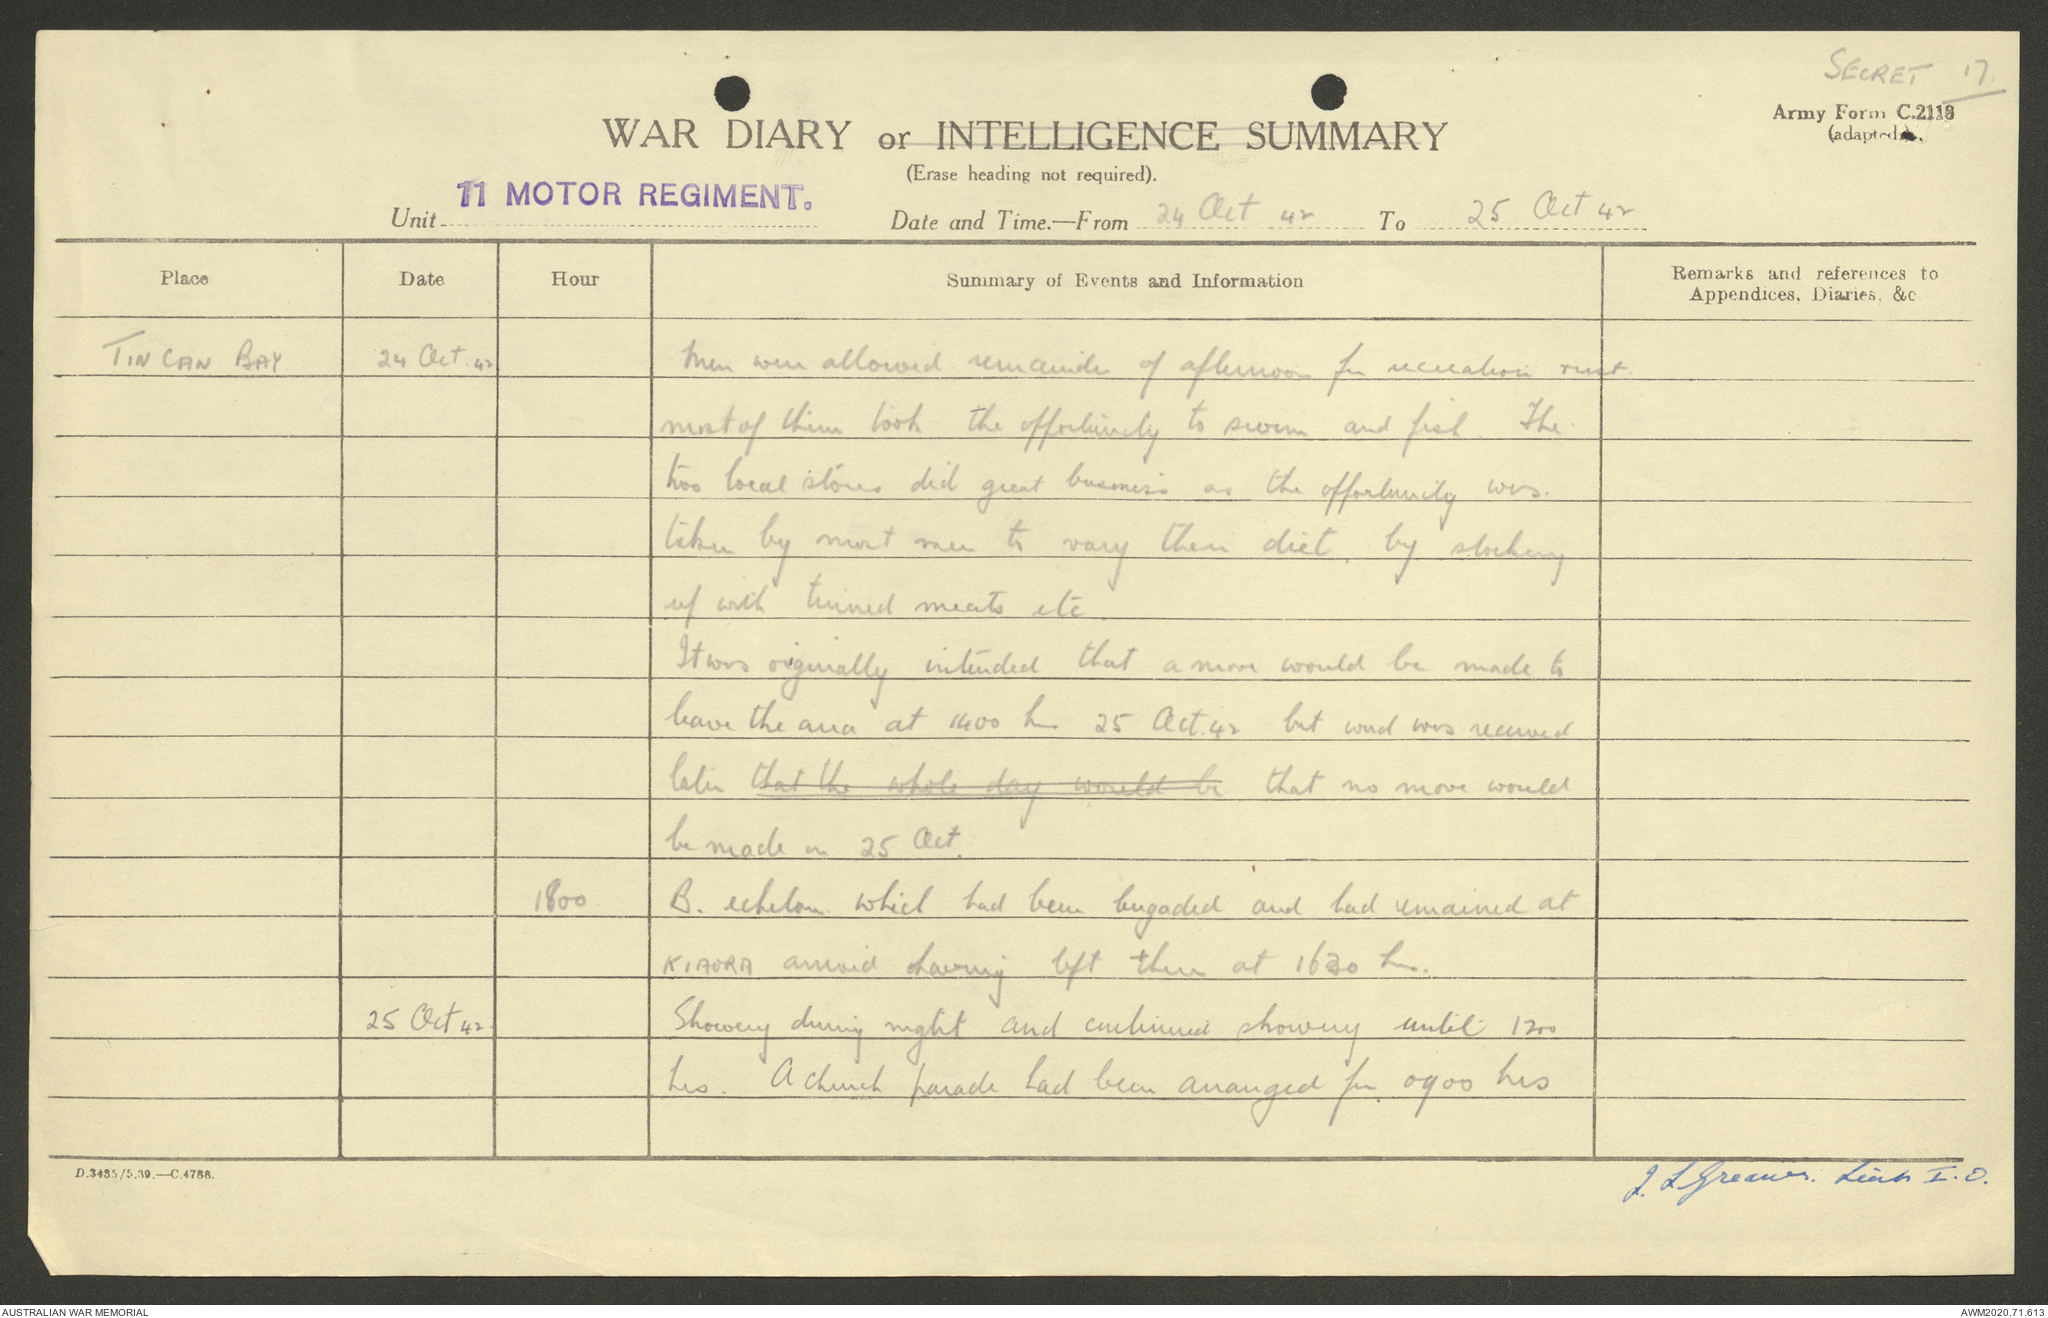 SECRET 17.
Army Form C.2118
(adapted).
WAR DIARY or INTELLIGENCE SUMMARY
(Erase heading not required).
Unit 11 MOTOR REGIMENT. Date and Time.—From 24 Oct 42 To 25 Oct 42
Place Date Hour Summary of Events and Information Remarks and references to
Appendices, Diaries, &c
TIN CAN BAY 24 Oct 42 Men were allowed remainder of afternoon for recreation
most of them took the opportunity to swim and fish. The
two local stores did great business as the opportunity was
taken by most men to vary their diet by stocking
up with tinned meats etc
It was originally intended that a move would be made to
leave the area at 1400 hrs 25 Oct. 42 but word was received
later that the whole day would be that no move would
be made on 25 Oct.
1800 B. echelon which had been brigaded and had remained at
KIAORA arrived having left there at 1630 hrs.
25 Oct 42 Showery during night and continued showery until 1200
hrs. A church parade had been arranged for 0900 hrs
D.3435/5.39.—C.4788.
J. L Greaves. Lieut I.O.
AUSTRALIAN WAR MEMORIAL AWM2020.71.613